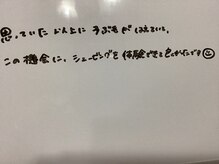 思っていた以上にうぶ毛が生えていて、
この機会に、シェービングを体験できてよかったです